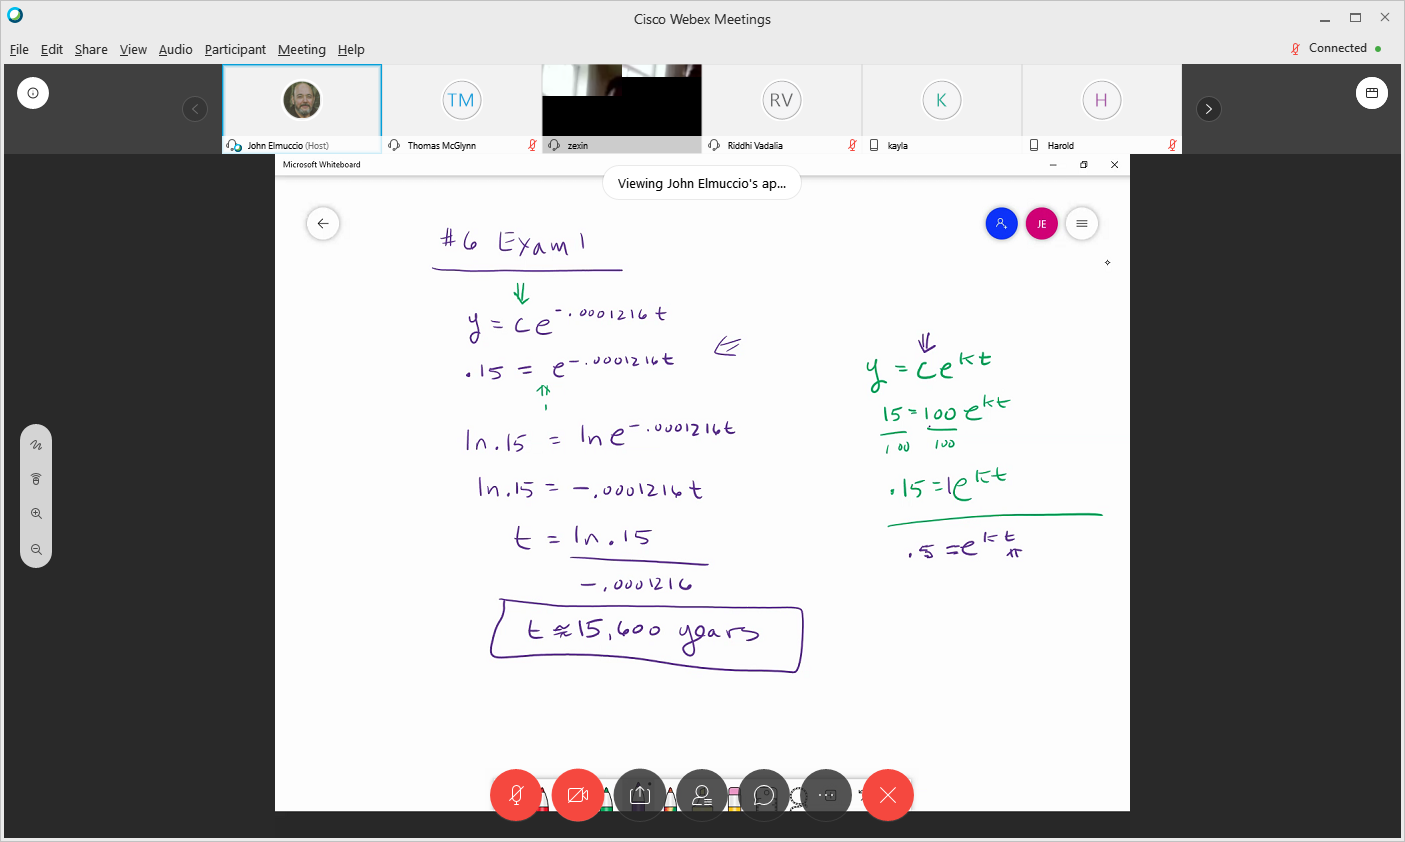 Cisco Webex Meetings
File Edit Share View Audio Participant Meeting Help
Connected
TM RV K H
John Elmuccio (Host) Thomas McGlynn zexin Riddhi Vadalia kayla Harold
Microsoft Whiteboard
Viewing John Elmuccio's ap...
JE
#6 Exam 1
y = ce^-.0001216t
.15 = e^-.0001216t
ln.15 = ln e^-.0001216t
ln.15 = -.0001216t
t = ln.15
-.0001216
t ≈ 15,600 years
y = ce^kt
15 = 100 e^kt
100 100
.15 = 1e^kt
.5 = e^kt